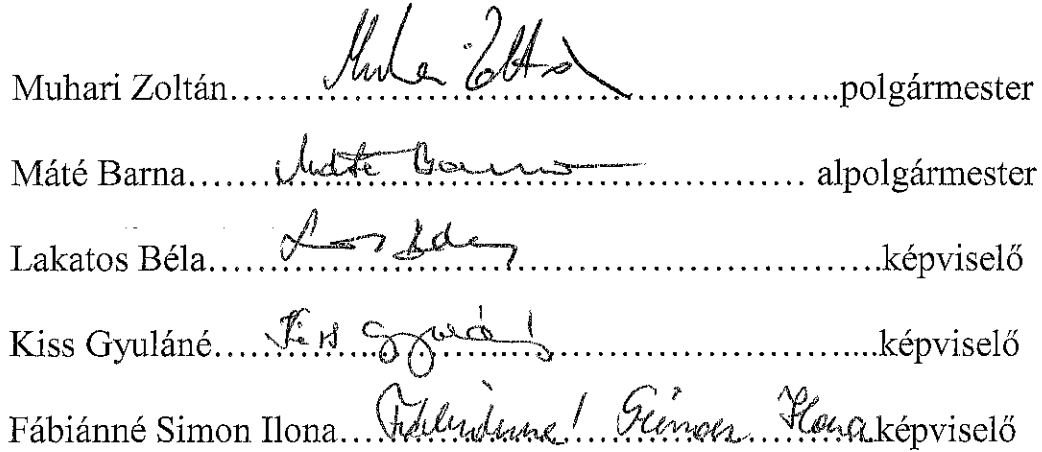 Muhari Zoltán.......Muhari Zoltán.......polgármester
Máté Barna.......Máté Barna....... alpolgármester
Lakatos Béla.......képviselő
Kiss Gyuláné.......Kiss Gyuláné.......képviselő
Fábiánné Simon Ilona...Fábiánné Simon Ilona.képviselő